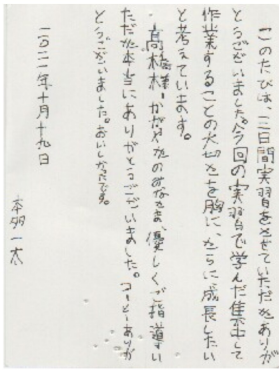 このたびは、三日間実習をさせていただきありが
とうございました。今回の実習で学んだ集中して
作業することの大切さを胸に、さらに成長したい
と考えています。
高橋様、かだれやのみなさま、優しくご指導い
ただき本当にありがとうございました。コーヒーありが
とうございました。おいしかったです。
二〇二一年十月十九日
本多一太